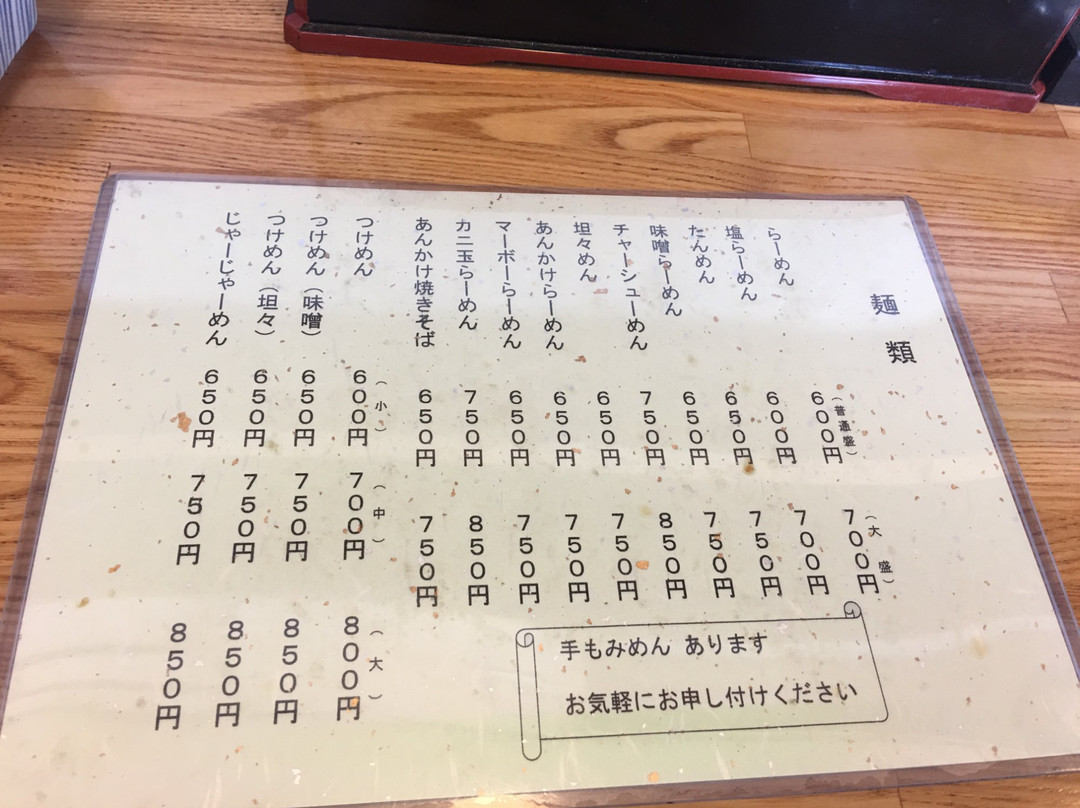 麺類
(普通盛) (大盛)
らーめん 600円 700円
塩らーめん 600円 700円
たんめん 650円 750円
味噌らーめん 650円 750円
チャーシューめん 750円 850円
坦々めん 650円 750円
あんかけらーめん 650円 750円
マーボーらーめん 650円 750円
カニ玉らーめん 750円 850円
あんかけ焼きそば 650円 750円
(小) (中) (大)
つけめん 600円 700円 800円
つけめん(味噌) 650円 750円 850円
つけめん(坦々) 650円 750円 850円
じゃーじゃーめん 650円 750円 850円
手もみめん あります
お気軽にお申し付けください